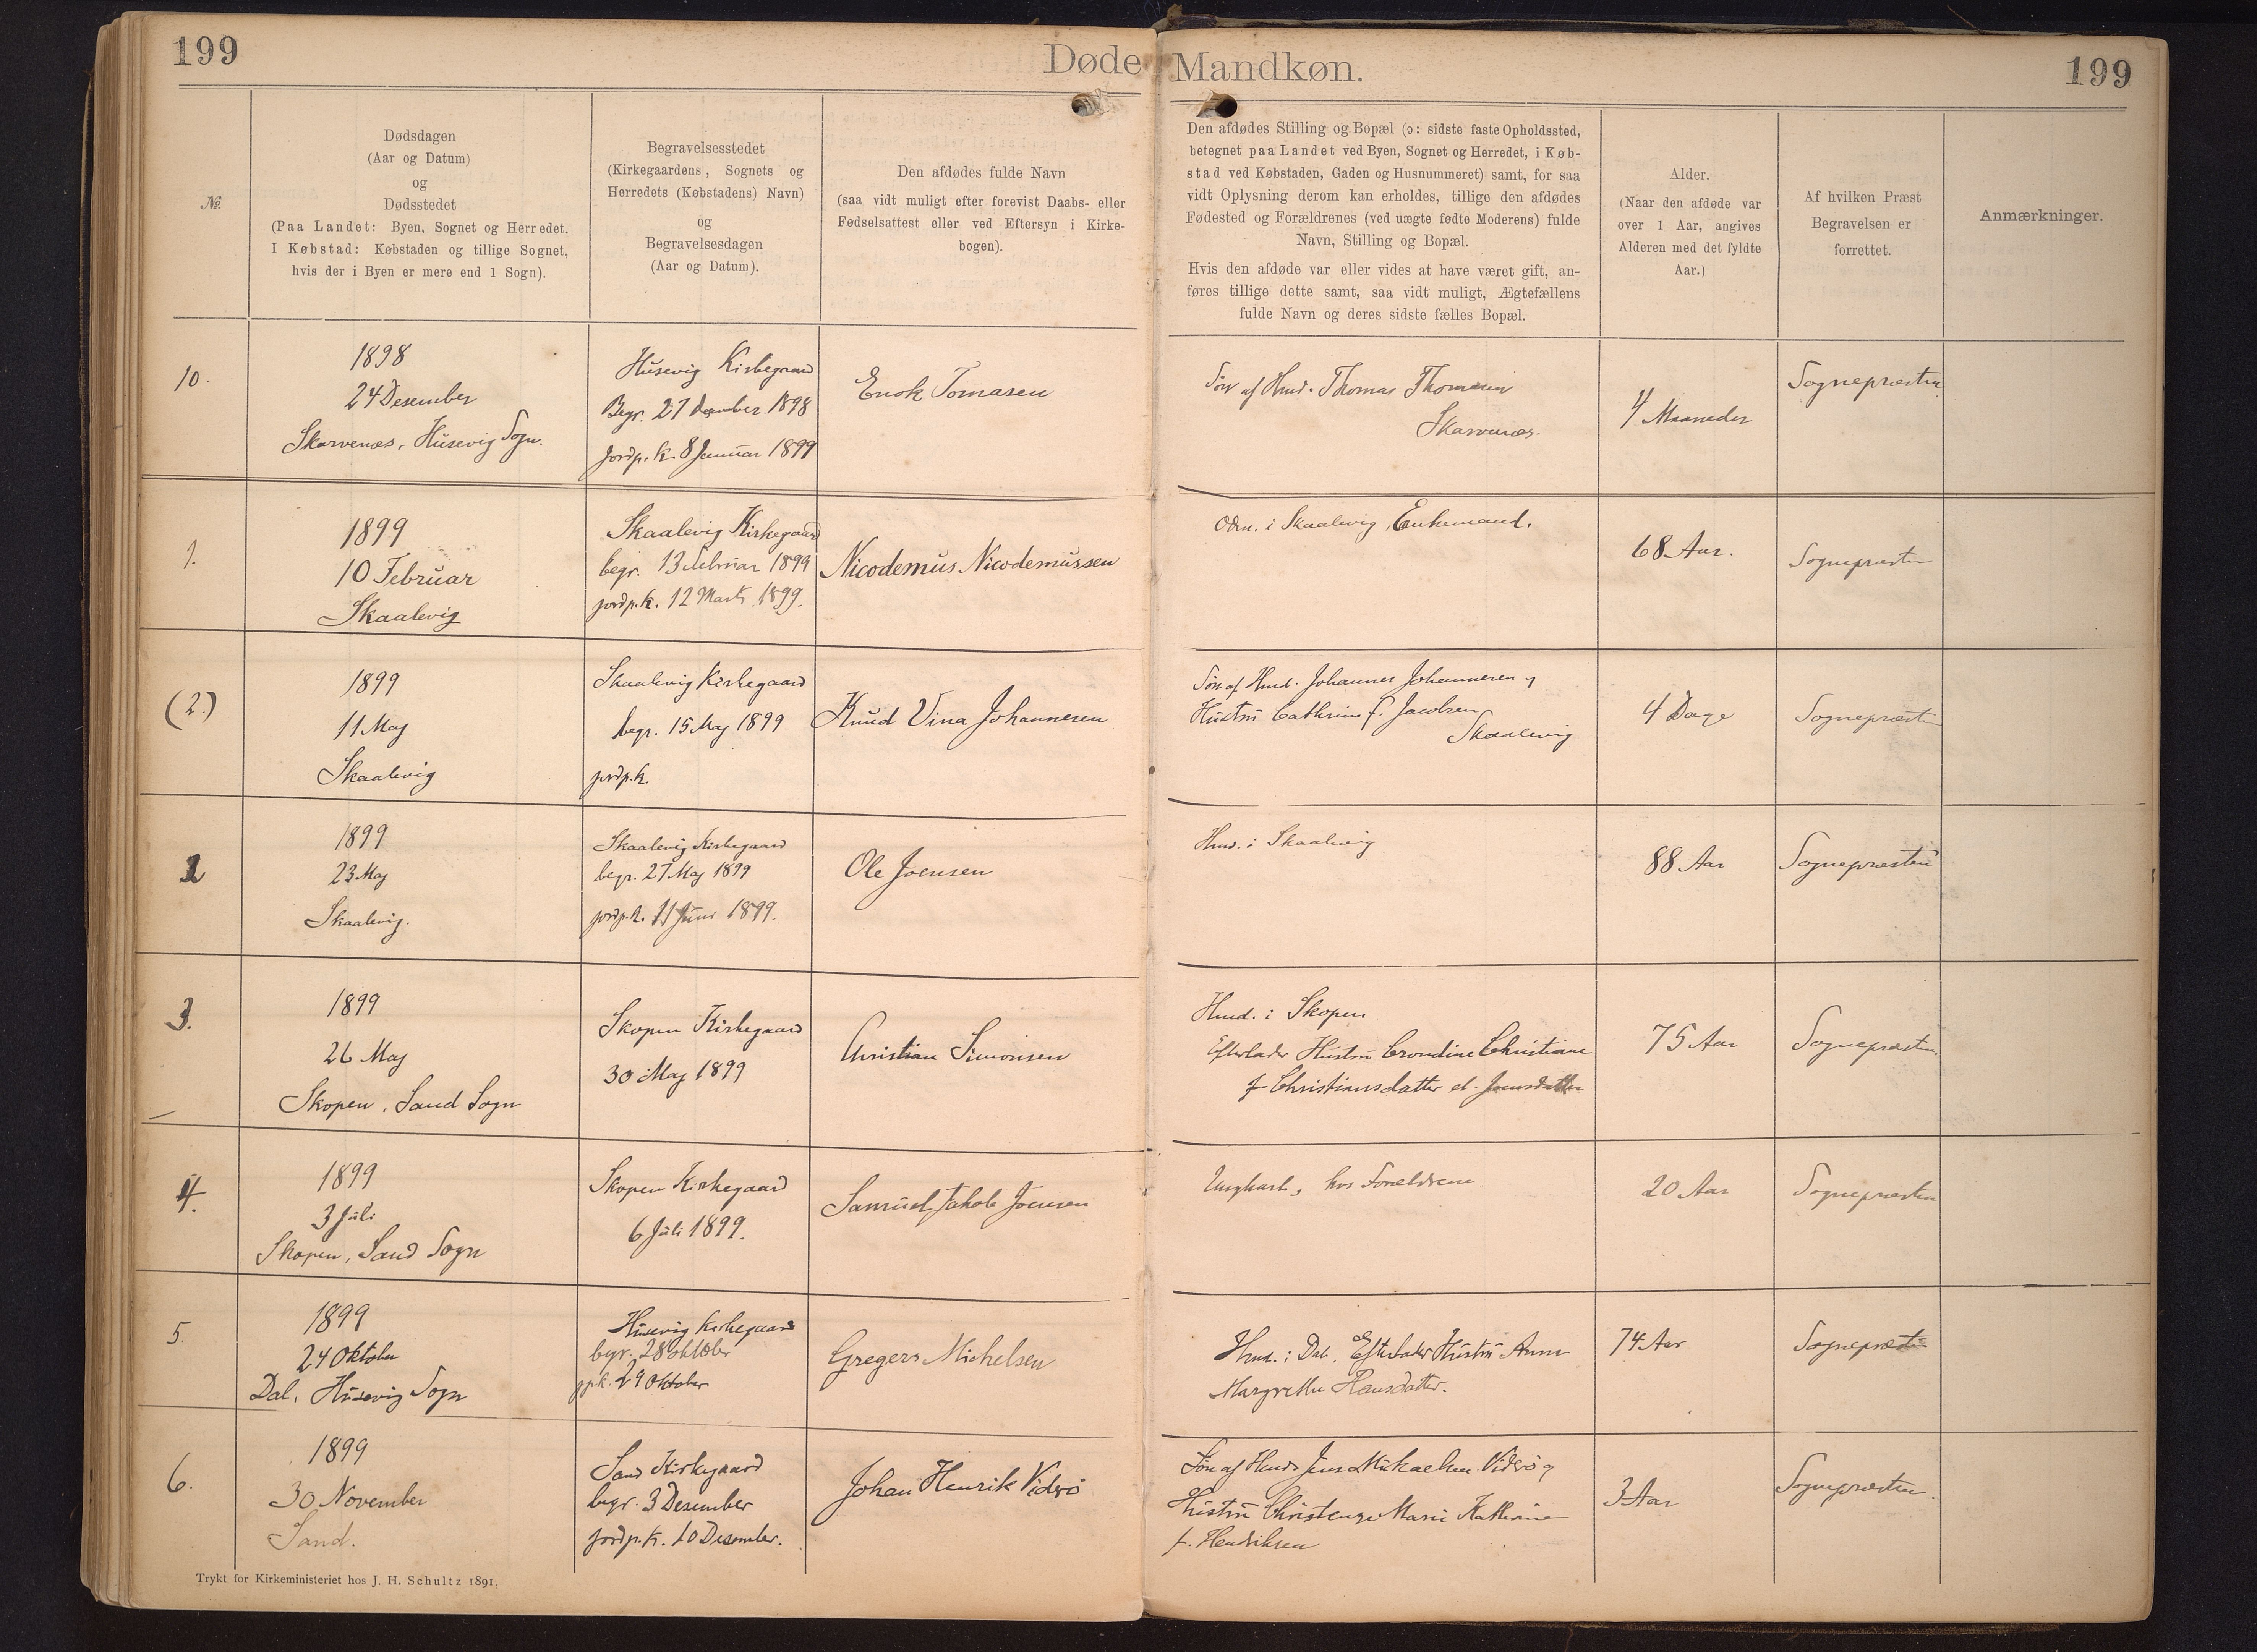 199
Døde Mandkøn.
199
№
Dødsdagen
(Aar og Datum)
og
Dødsstedet
(Paa Landet: Byen, Sognet og Herredet.
I Købstad: Købstaden og tillige Sognet,
hvis der i Byen er mere end 1 Sogn).
Begravelsesstedet
(Kirkegaardens, Sognets og
Herredets (Købstadens) Navn)
og
Begravelsesdagen
(Aar og Datum).
Den afdødes fulde Navn
(saa vidt muligt efter forevist Daabs- eller
Fødselsattest eller ved Eftersyn i Kirke-
bogen).
Den afdødes Stilling og Bopæl (ɔ: sidste faste Opholdssted,
betegnet paa Landet ved Byen, Sognet og Herredet, i Køb-
stad ved Købstaden, Gaden og Husnummeret) samt, for saa
vidt Oplysning derom kan erholdes, tillige den afdødes
Fødested og Forældrenes (ved uægte fødte Moderens) fulde
Navn, Stilling og Bopæl.
Hvis den afdøde var eller vides at have været gift, an-
føres tillige dette samt, saa vidt muligt, Ægtefællens
fulde Navn og deres sidste fælles Bopæl.
Alder.
(Naar den afdøde var
over 1 Aar, angives
Alderen med det fyldte
Aar.)
Af hvilken Præst
Begravelsen er
forrettet.
Anmærkninger.
10.
1898
24 Desember
Skarvenæs, Husevig Sogn.
Husevig Kirkegaard
Begr. 27 December 1898
Jordp. k. 8 Januar 1899
Enok Tomasen
Søn af Hmd. Thomas Thomasen
Skarvenæs.
4 Maaneder
Sognepræsten
1.
1899
10 Februar
Skaalevig
Skaalevig Kirkegaard
begr. 13 Februar 1899
jordp. k. 12 Marts 1899.
Nicodemus Nicodemussen
Odm. i Skaalevig, Enkemand.
68 Aar.
Sognepræsten
(2.)
1899
11 Maj
Skaalevig
Skaalevig Kirkegaard
begr. 15 Maj 1899
jordp. k.
Knud Vina Johannesen
Søn af Hmd. Johannes Johannesen og
Hustru Cathrine f. Jacobsen
Skaalevig
4 Dage
Sognepræsten
2
1899
23 Maj
Skaalevig.
Skaalevig Kirkegaard
begr. 27 Maj 1899
jordp. k. 11 Juni 1899.
Ole Joensen
Hmd. i Skaalevig
88 Aar
Sognepræsten
3.
1899
26 Maj
Skopen, Sand Sogn
Skopen Kirkegaard
30 Maj 1899
Christian Simonsen
Hmd. i Skopen
Efterlader Hustru Crondine Christiane
f. Christiansdatter el. Joensdatter
75 Aar
Sognepræsten.
4.
1899
3 Juli
Skopen, Sand Sogn
Skopen Kirkegaard
6 Juli 1899.
Samuel Jakob Joensen
Ungkarl, hos Forældrene.
20 Aar
Sognepræsten
5.
1899
24 Oktober
Dal, Husevig Sogn
Husevig Kirkegaard
begr. 28 Oktober
jp. k. 29 Oktober
Gregers Michelsen
Hmd. i Dal. Efterlader Hustru Anna
Margrethe Hansdatter.
74 Aar
Sognepræsten
6.
1899
30 November
Sand.
Sand Kirkegaard
begr. 3 Desember
jordp. k. 10 Desember.
Johan Henrik Viderø
Søn af Hmd. Jens Mikkaelsen Viderø og
Hustru Christense Marie Kathrine
f. Hendriksen
3 Aar
Sognepræsten.
Trykt for Kirkeministeriet hos J. H. Schultz 1891.